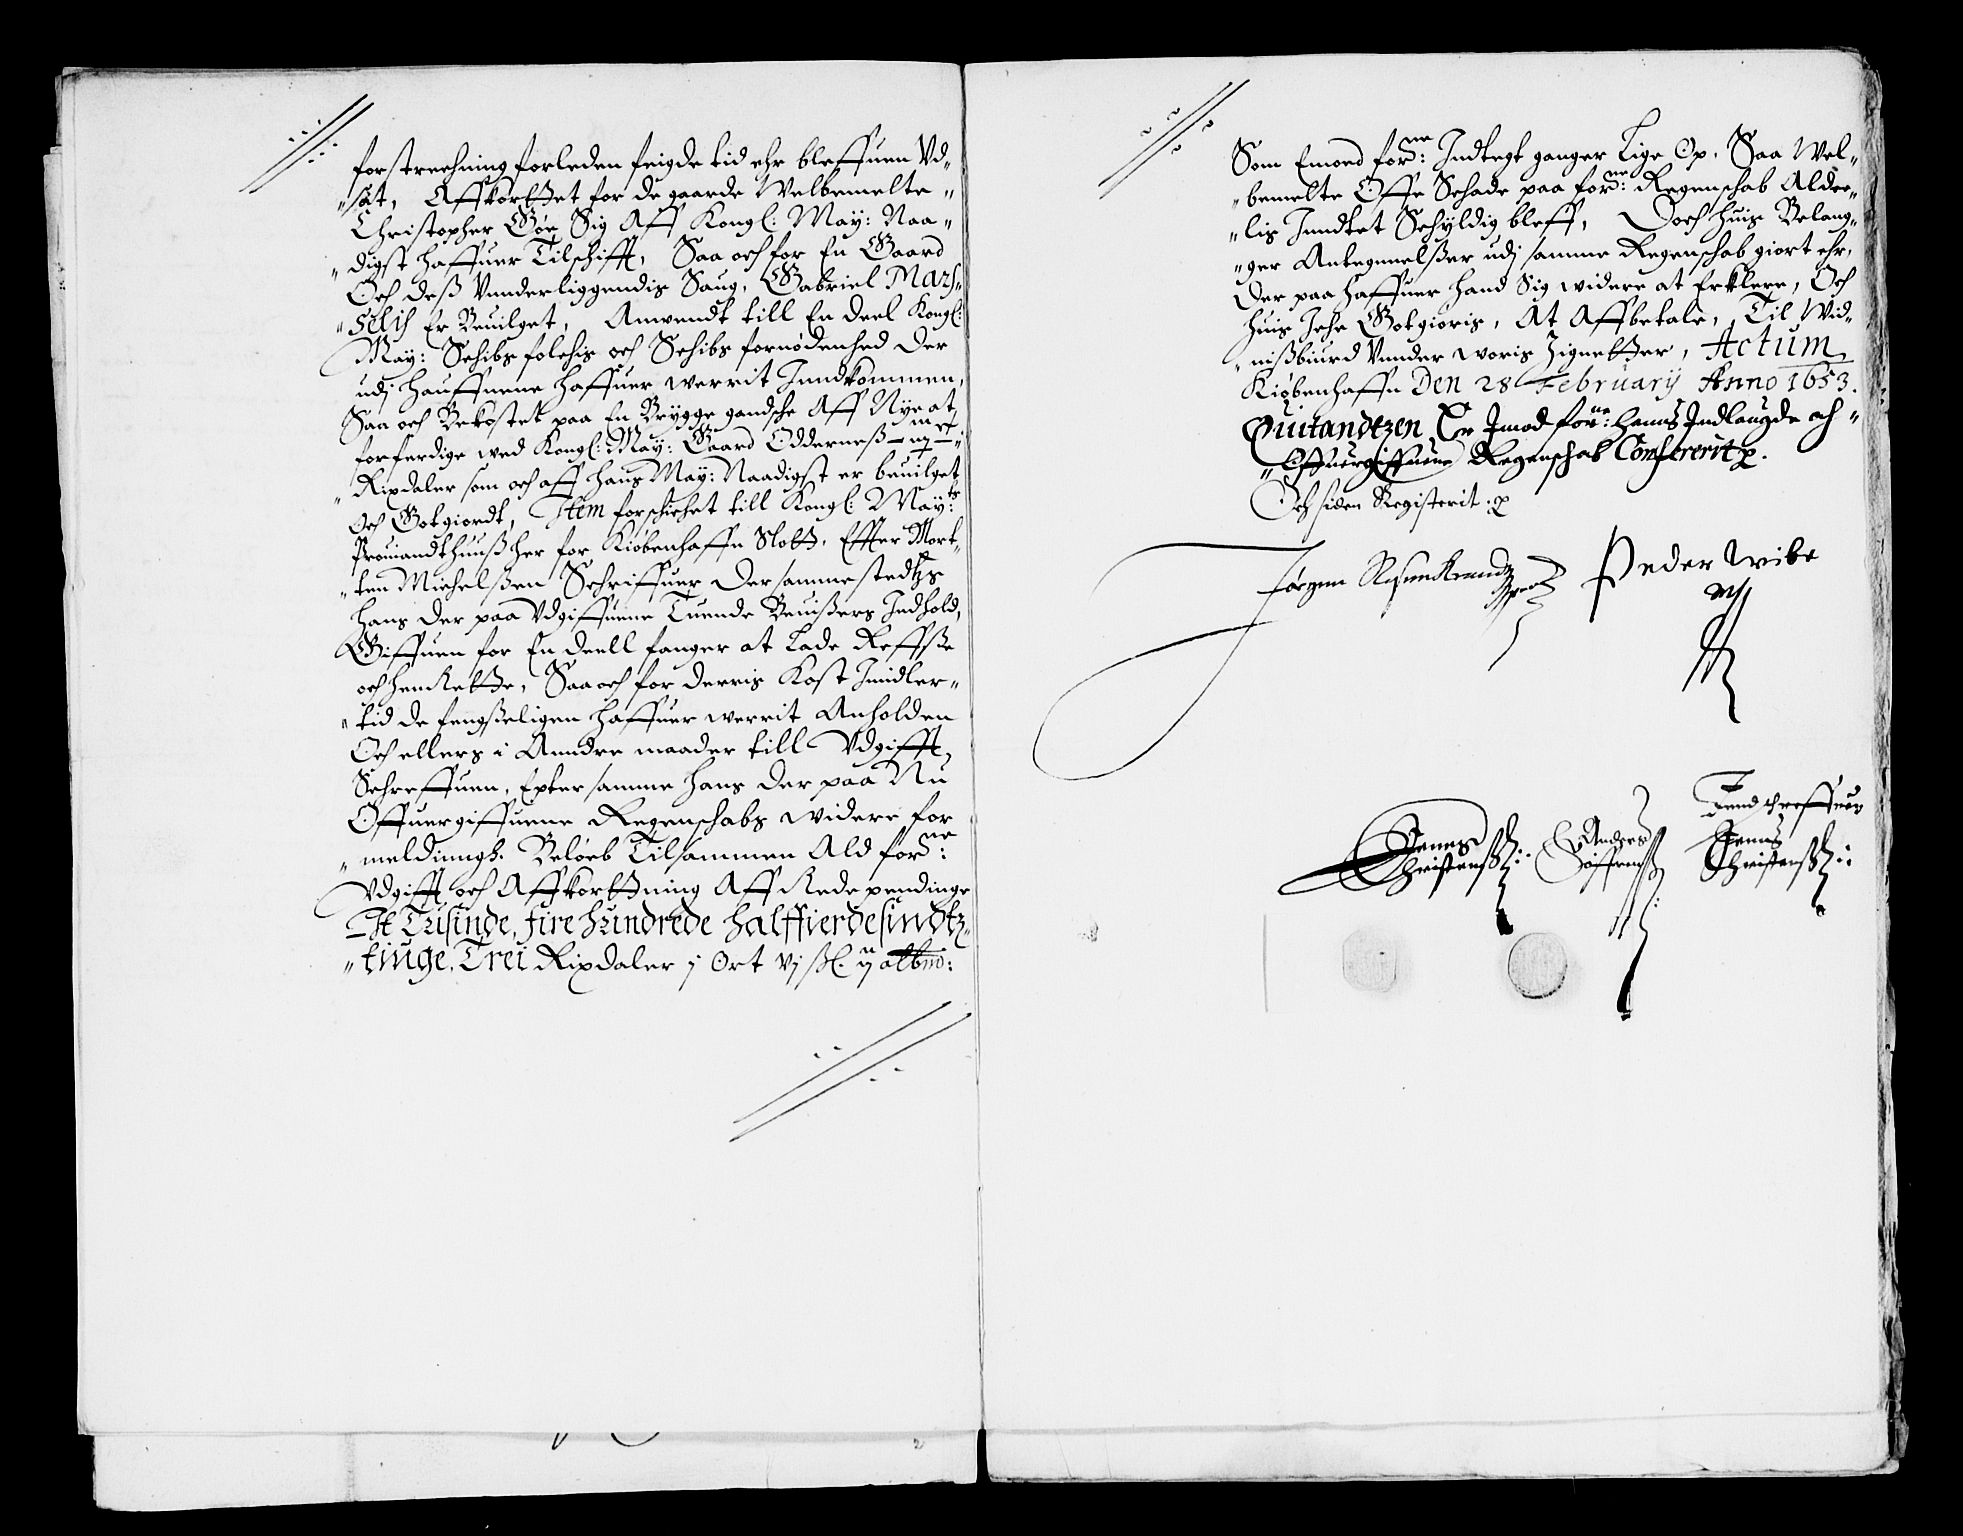 forstrechning forleden feigde tid ehr bleffuen Vd-
"sat, Affkorttet for de gaarde Welbemelte "
Christopher Gøe Sig Aff Kongl: May: Naa-
"digst haffuer Tilschifft, Saa och for En Gaard
Och deß Vnderliggendis Saug, Gabriel Mars-
"selis Er Beuilget, Anwendt till En deel Kongl:
May: Schibs folchis och Schibs fornødenhed Der
udj hauffnene haffuer werrit Inndkommen,
Saa och Bekostet paa En Brygge gandsche Aff Nye at
forferdige wed Kongl: May: Gaard Odderneß
"Rixdaler som och aff hans May: Naadigst er beuilget
och Gotgiordt, Item forschichet till Kongl: May:ts
Prouiandthuuß her for Kiøbenhaffn Slott, Effter Mort-
"ten Michelßen Schriffuer Dersammestedtzs
hans Der paa Vdgiffuene Tuende Beuißers Indhold,
Giffuen for En deell fanger at Lade Reffße
och henRette, Saa och for Derris Kost Imidler-
"tid de fengßeligen haffuer werrit Anholden
Och ellers i Anndre maader till Vdgifft,
Schreffuen, Epter samme hans Der paa Nu
Offuergiffuene Regenschabs widere for
"meldinngh. Beløeb Tilsammen Ald forne:
Vdgifft och Affkorttning Aff Rede pendinge
It Tusinde, fire hundrede halffierdesindtz-
"tiuge, Trei Rixdaler j Ort vj ßl. ij albno:
Som Emoed forne: Indtegt ganger Lige Op, Saa Wel-
"bemelte Offe Schade paa forne: Regenschab Alder-
"lis Inndtet Schyldig bleff, Doch huis Belang-
"ger Antegnnelßer udj samme Regenschab giort ehr,
Der paa haffuer hand Sig widere at Erklere, Och
huis Iche Gotgioris, At Affbetale, Til Wid-
"nißbiurd Vnnder woris Zignetter, Actum
Kiøbenhaffn Den 28 February Anno 1653.
Quitandtzen Er Imod forne: hans Indlaugde och "
"Offuergiffuene Regenschab Confererit
Och siden Registerit
Jørgen Rosenkrandtz Peder Wibe
Tendschreffuer
Jenns Anders Jenns
Christenßen Christenßen